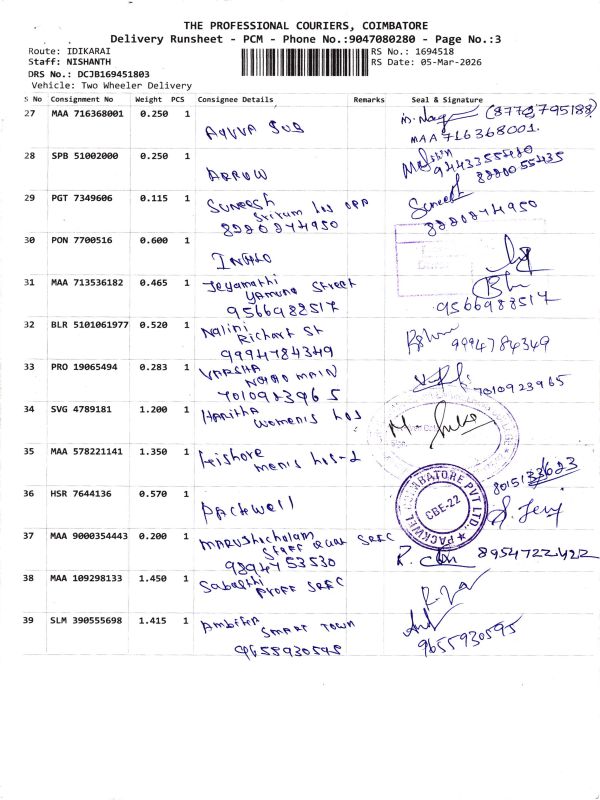 THE PROFESSIONAL COURIERS, COIMBATORE
Delivery Runsheet - PCM - Phone No.:9047080280 - Page No.:3
Route: IDIKARAI
RS No.: 1694518
Staff: NISHANTH
RS Date: 05-Mar-2026
DRS No.: DCJB169451803
Vehicle: Two Wheeler Delivery
S No Consignment No Weight PCS Consignee Details Remarks Seal & Signature
27 MAA 716368001 0.250 1
MAA 716368001.
28 SPB 51002000 0.250 1 ARROW
9443355480
8880055435
29 PGT 7349606 0.115 1 Suneesh
Sriram hos opp
8220874950
Suneesh
8220874950
30 PON 7700516 0.600 1
31 MAA 713536182 0.465 1 Jeyamathi
Yamuna Street
9566982517
9566988517
32 BLR 5101061977 0.520 1 Nalini
Richart St
9994784349
9994784349
33 PRO 19065494 0.283 1 VARSHA
MAIN
7010923965
7010923965
34 SVG 4789181 1.200 1 Haritha
Womens hos
35 MAA 578221141 1.350 1 Kishore
mens hos-2
36 HSR 7644136 0.570 1 PACKWELL
8015133623
PACKWELL COIMBATORE PVT LTD.,
CBE-22
37 MAA 9000354443 0.200 1
Staff Quat SREC
9894753530
8954722422
38 MAA 109298133 1.450 1 Sabarthi
Proff SREC
39 SLM 390555698 1.415 1 Ambika
SMART TOWN
9655930595
9655930595